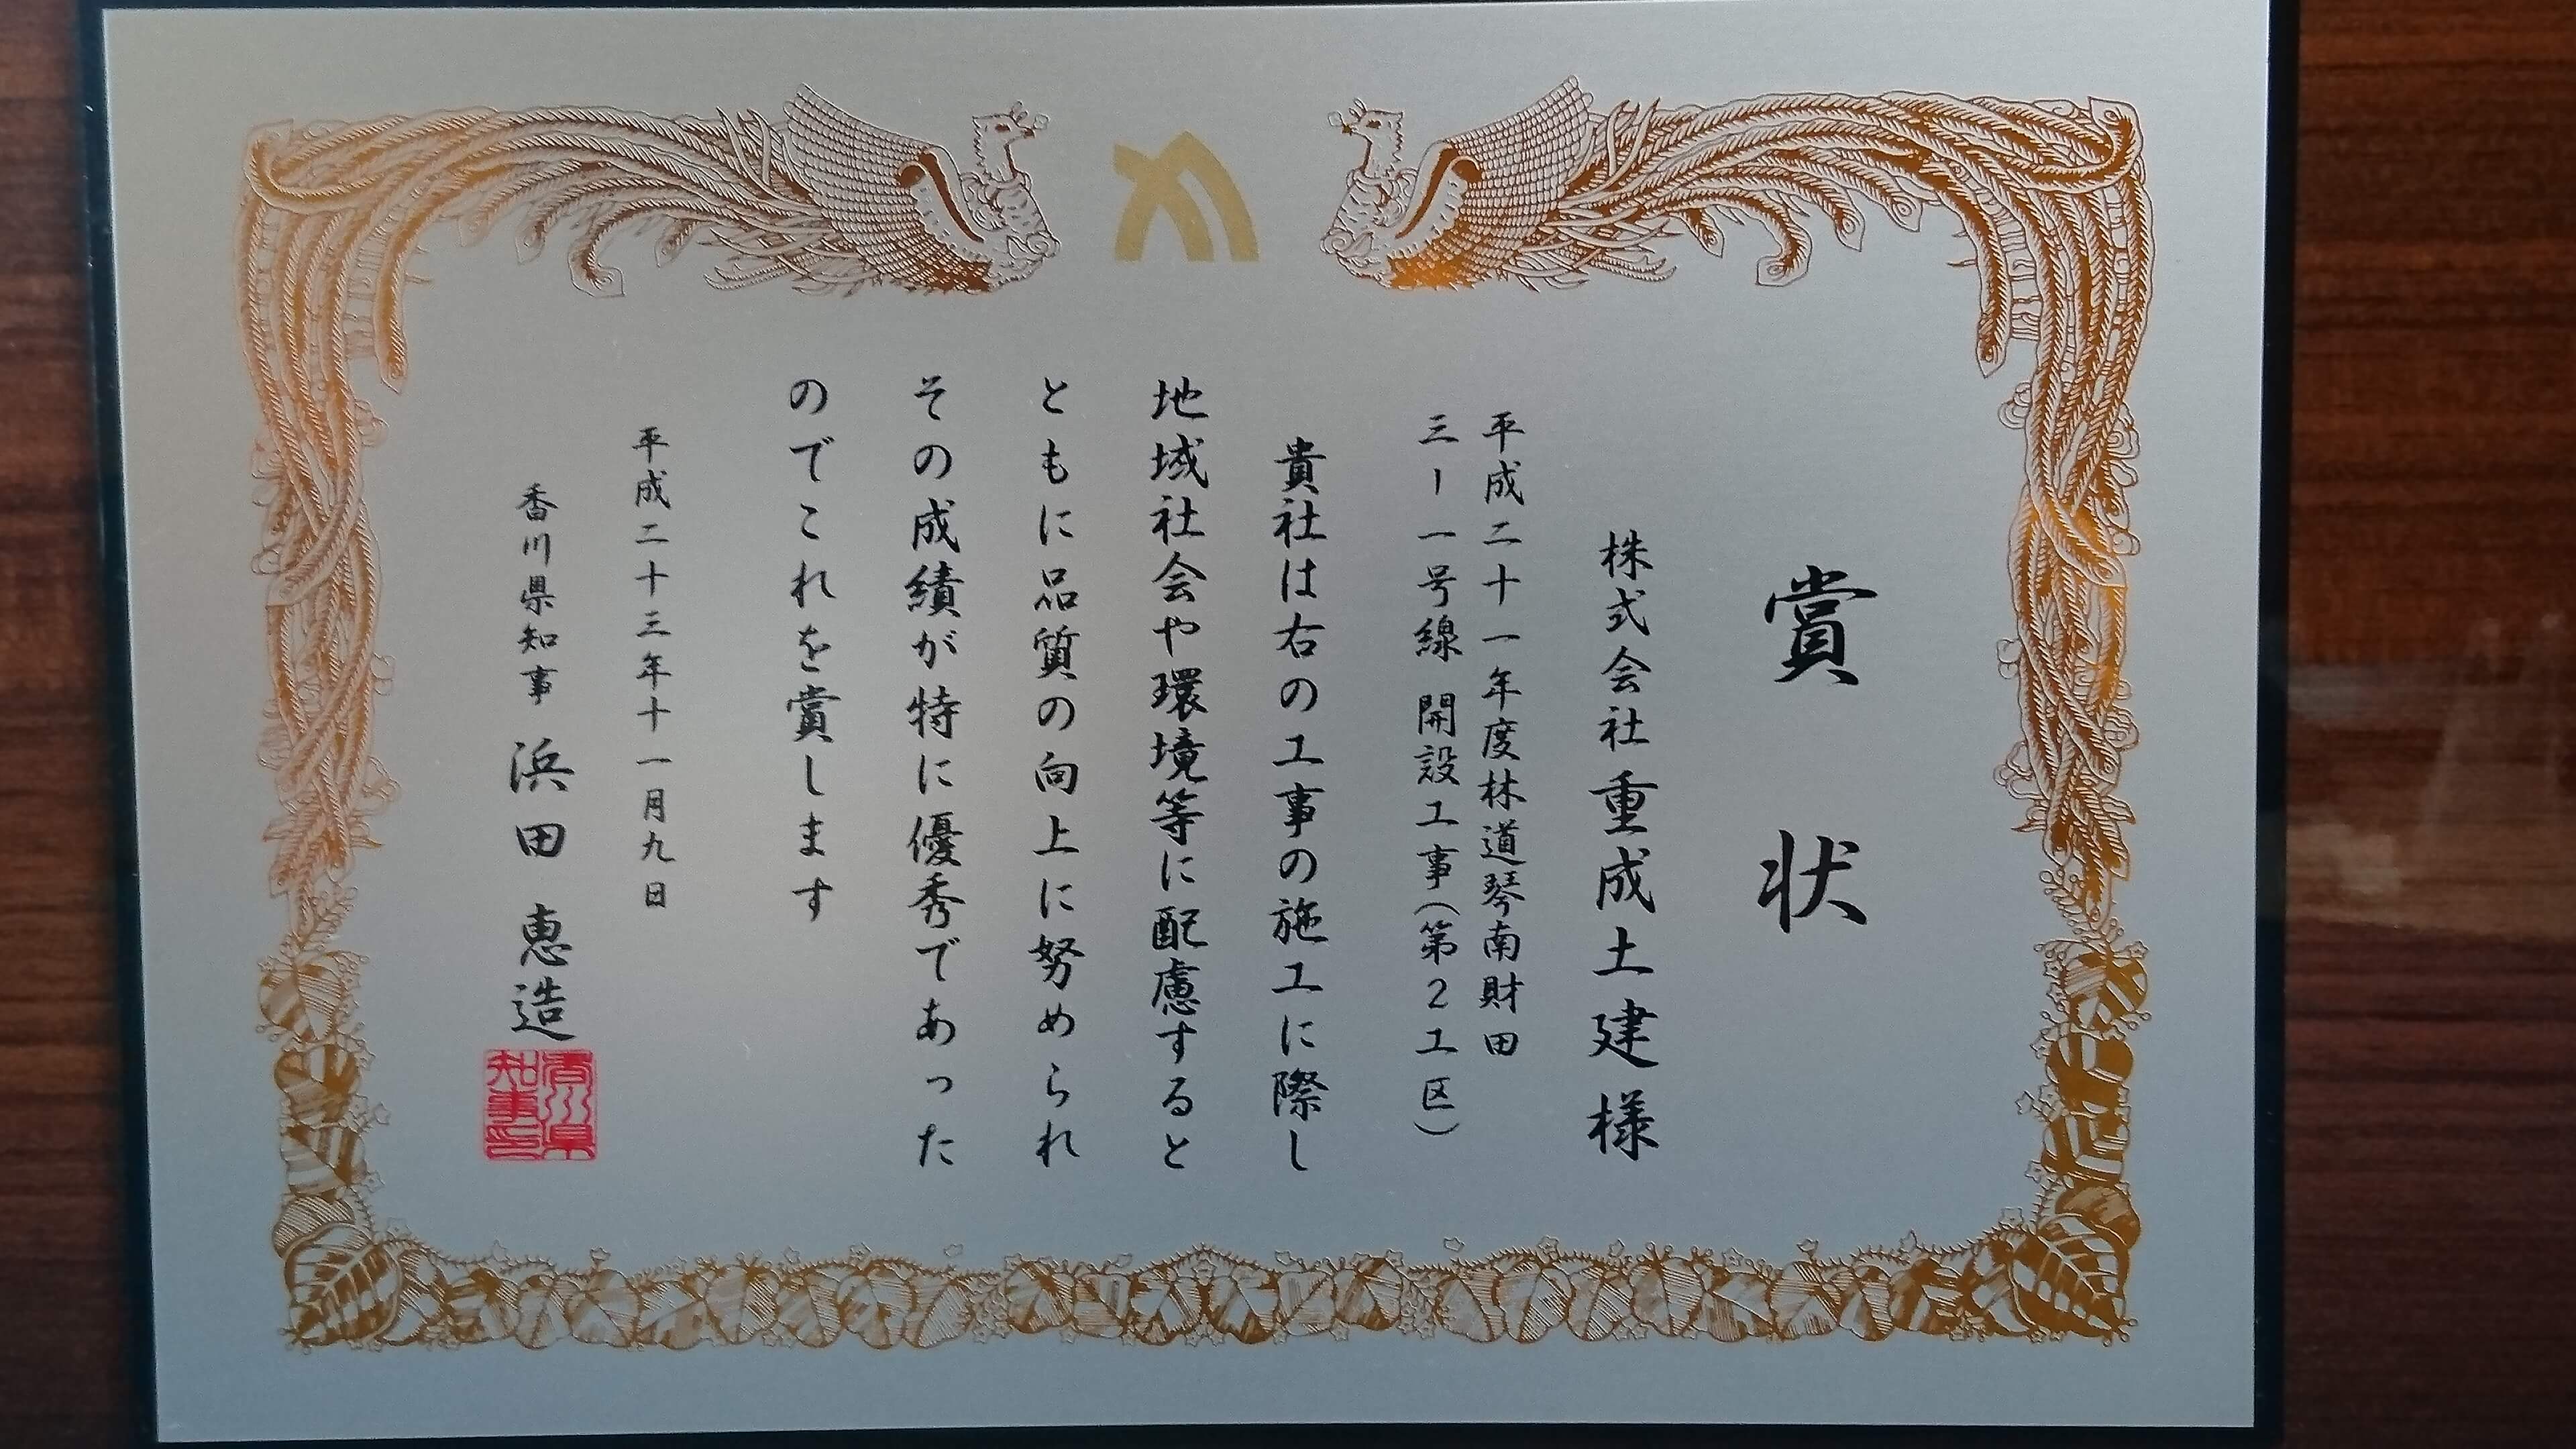 賞状
株式会社重成土建様
平成二十一年度林道琴南財田
三ー一号線 開設工事(第2工区)
貴社は右の工事の施工に際し
地域社会や環境等に配慮すると
ともに品質の向上に努められ
その成績が特に優秀であった
のでこれを賞します
平成二十三年十一月九日
香川県知事 浜田恵造
香川県
知事印